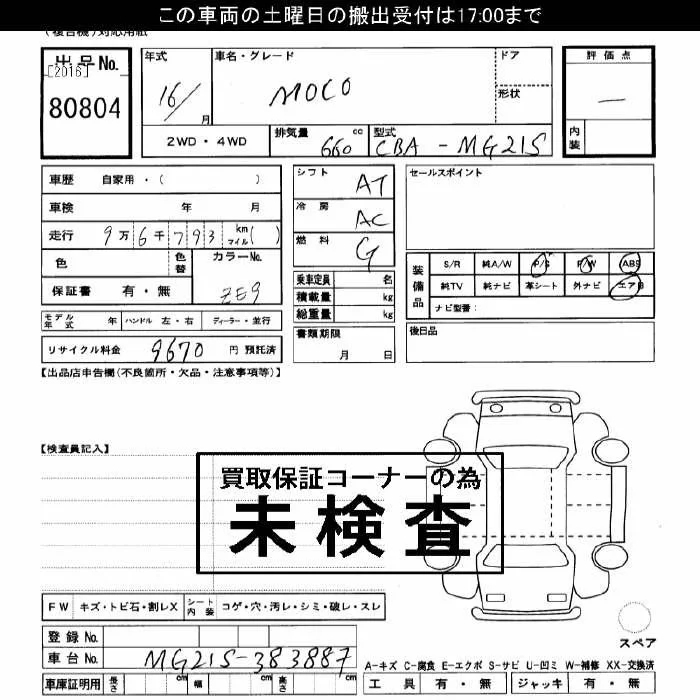 この車両の土曜日の搬出受付は17:00まで
(複合機)対応用紙
出品No.
[2016]
80804
年式
16/
月
車名・グレード
MOCO
ドア
形状
評価点
―
内装
2WD・4WD
排気量
660 cc
型式
CBA-MG21S
車歴 自家用・( )
車検 年 月
走行 9万6千793 km マイル( )
色
色替
カラーNo.
ZE9
保証書 有・無
シフト
AT
冷房
AC
燃料
G
乗車定員 名
積載量 kg
総重量 kg
セールスポイント
装備品
S/R 純A/W P/S P/W ABS
純TV 純ナビ 革シート 外ナビ エアB
ナビ型番:
モデル年式 年 ハンドル 左・右 ディーラー・並行
リサイクル料金 9670 円 預託済
書類期限
月 日
後日品
【出品店申告欄(不良箇所・欠品・注意事項等)】
【検査員記入】
買取保証コーナーの為
未検査
FW キズ・トビ石・割レX シート内装 コゲ・穴・汚レ・シミ・破レ・スレ
スペア
登録No.
車台No. MG21S-383887
車庫証明用 長さ cm 幅 cm 高さ cm
A-キズ C-腐食 E-エクボ S-サビ U-凹ミ W-補修 XX-交換済
工具 有・無 ジャッキ 有・無